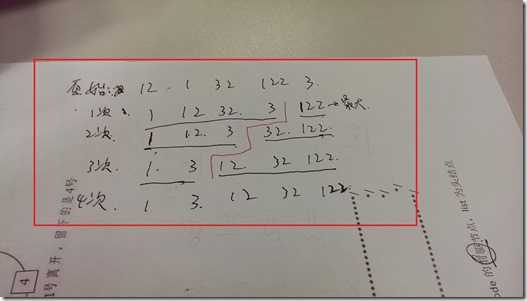 原始: 12 . 1 32 122 3.
1次: 1 12 32. 3 122→最大.
2次: 1 12. 3 32. 122.
3次. 1. 3 12. 32 122.
4次. 1 3. 12 32 122.
4
1号离开,留下的是4号
ode 的
节点,list 为头结点